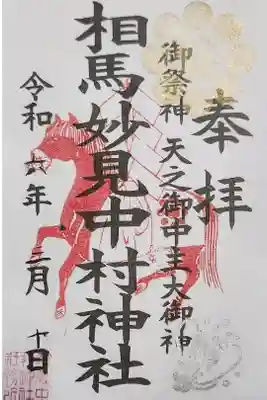 奉拝
御祭神 天之御中主大御神
相馬妙見中村神社
令和六年 三月 十日